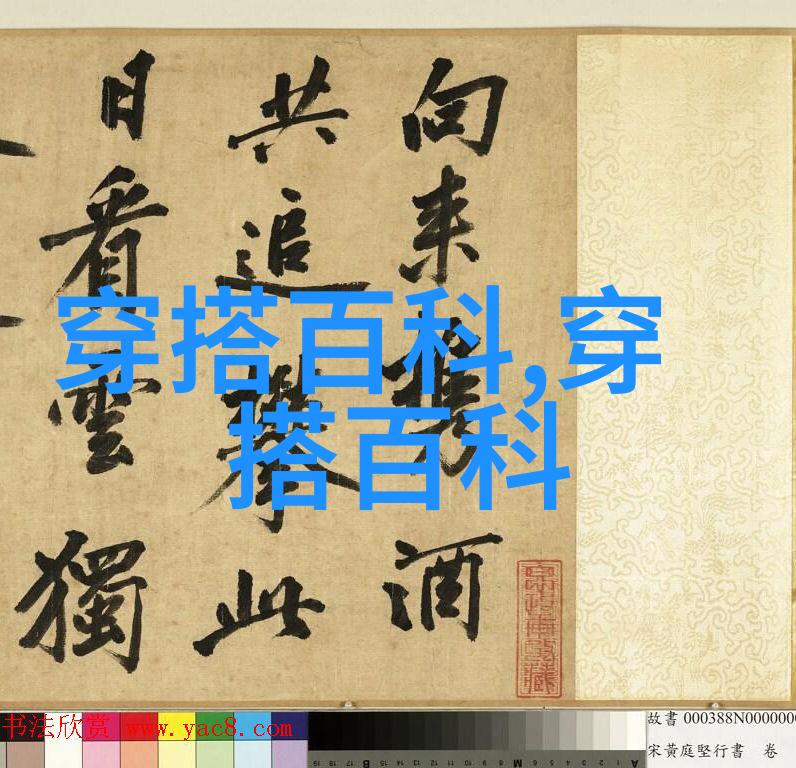 向来携酒
共追攀此
日看雲獨
穿搭百科,穿
搭百科
书法欣赏 www.yac8.com
故書 000388N0000000
宋黃庭堅行書 卷